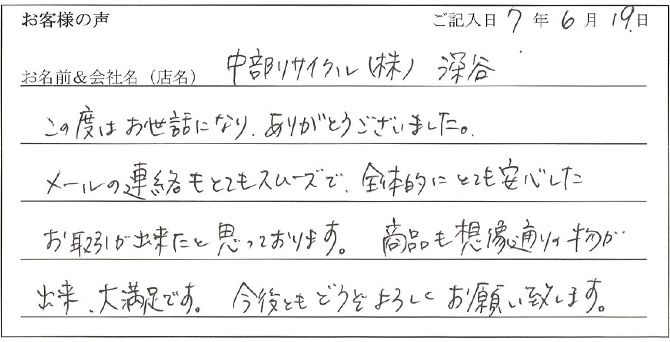 お客様の声 ご記入日 7 年 6 月 19 日
お名前&会社名（店名） 中部リサイクル(株) 深谷
この度はお世話になり、ありがとうございました。
メールの連絡もとてもスムーズで、全体的にとても安心した
お取引が出来たと思っております。 商品も想像通りの物が
出来、大満足です。 今後ともどうぞよろしくお願い致します。